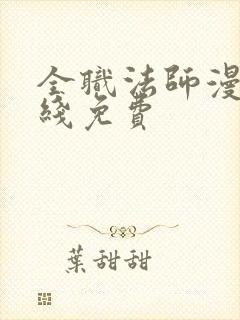 全職法師漫
綫免費
葉甜甜